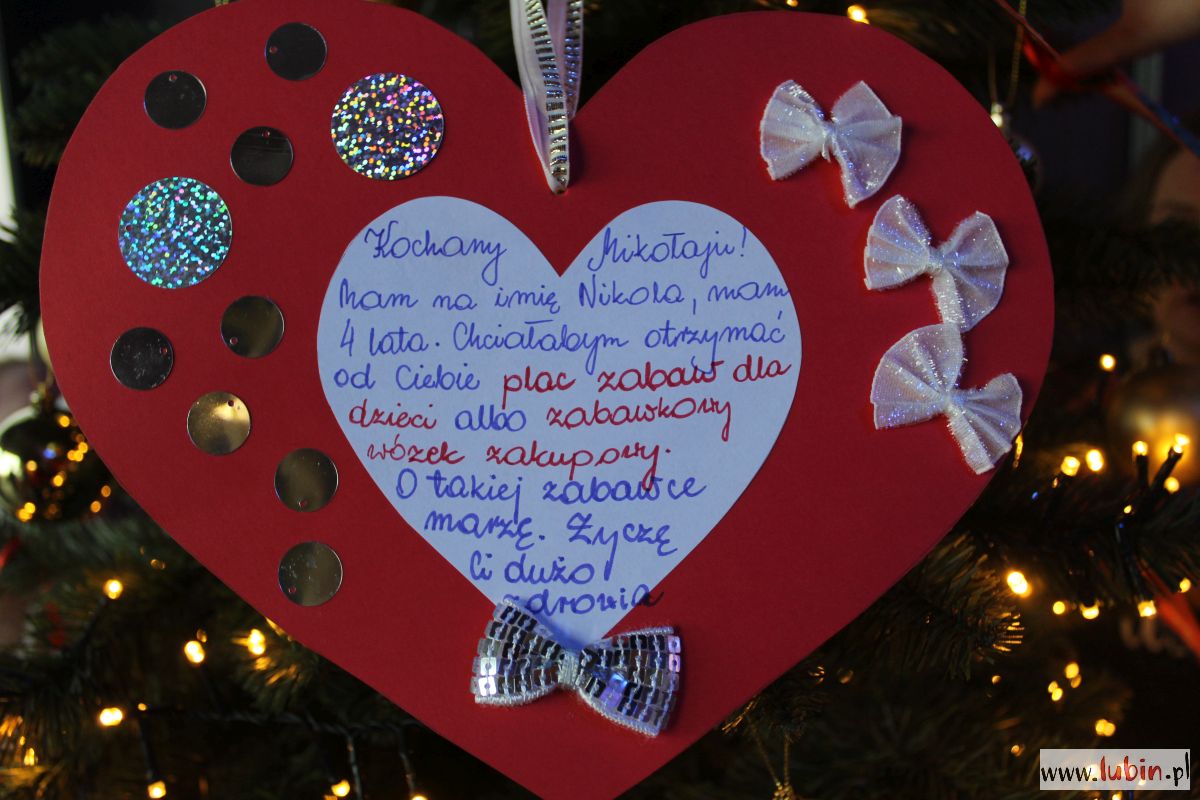 Kochany Mikołaju!
Mam na imię Nikola, mam
4 lata. Chciałabym otrzymać
od Ciebie plac zabaw dla
dzieci albo zabawkowy
wózek zakupowy.
O takiej zabawce
marzę. Życzę
Ci dużo
zdrowia
www.lubin.pl